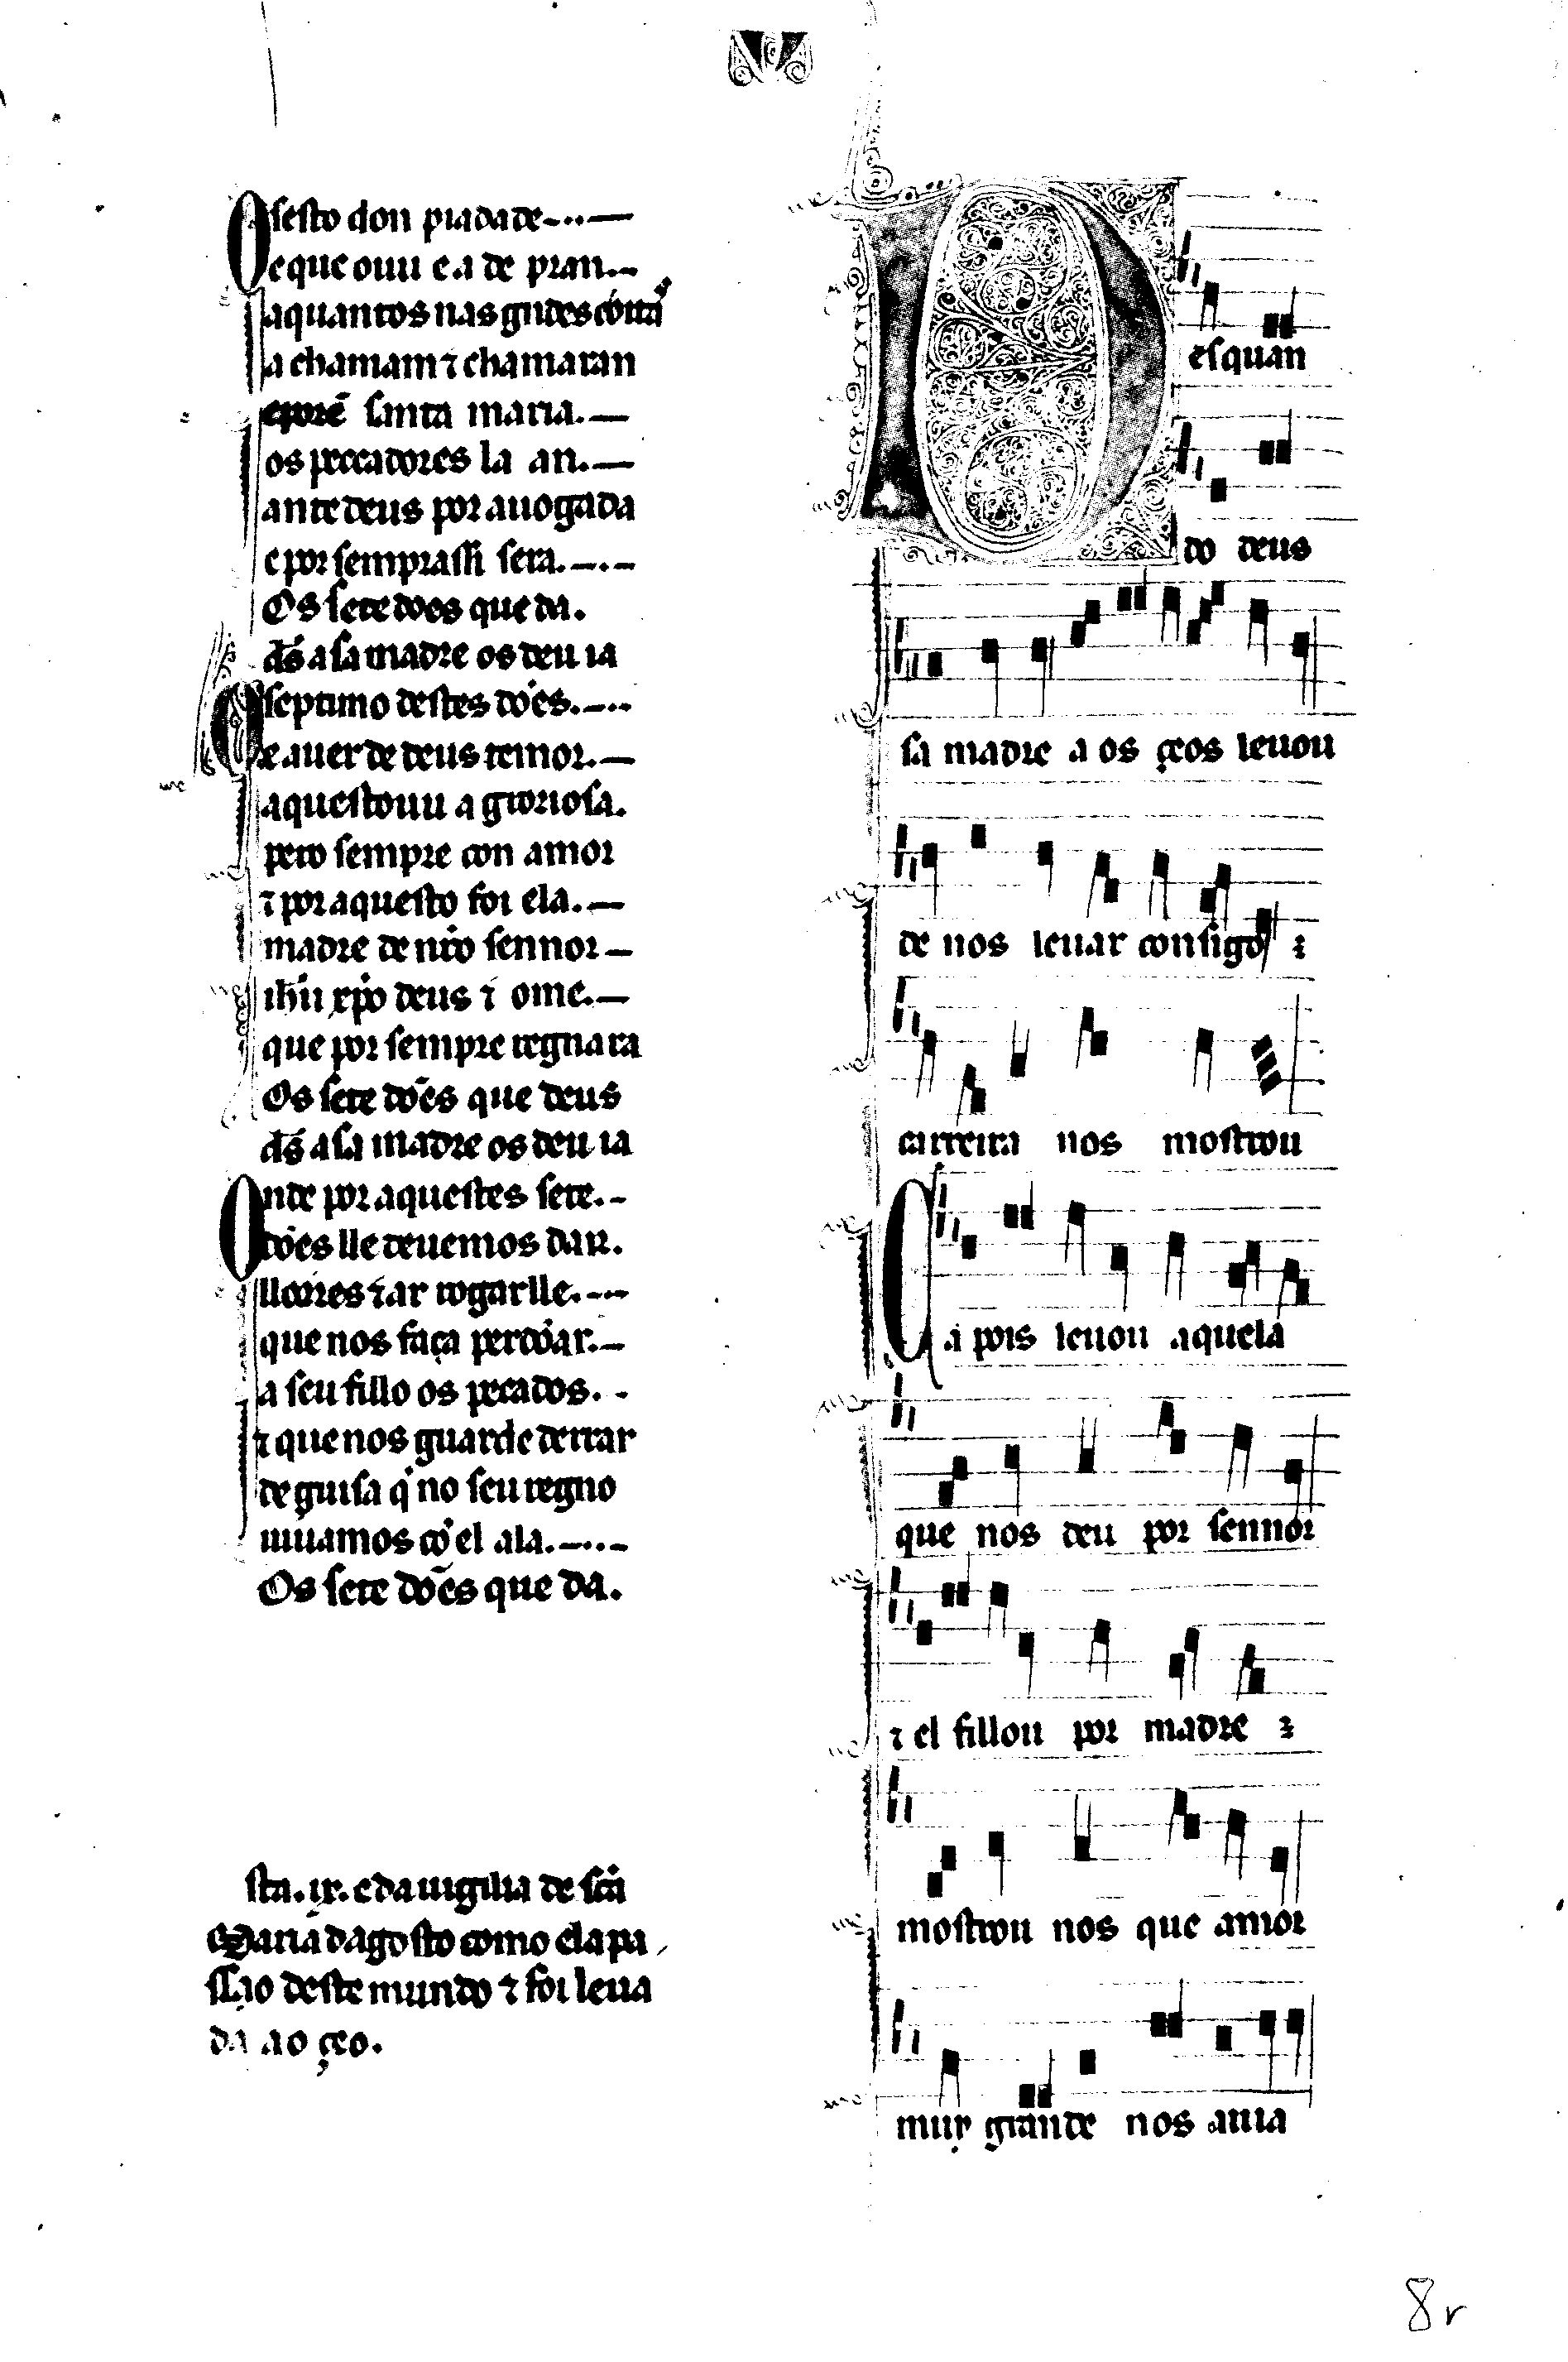 O sesto don piadade
e que ouu e a de pran.
a quantos nas gn̄des cóita
a chamam ⁊ chamaran
e porē santa maria.
os peccadores la an.
ante deus por auogada
e por semprassi sera.
Os sete does que da.
ds̄ a sa madre os deu ia
O septimo destes dões.
e auer de deus temor.
aquestouu a groriosa.
pero sempre con amor
⁊ por aquesto foi ela.
madre de nr̄o sennor
ih̄u xp̄o deus ⁊ ome.
que por sempre regnara
Os sete dões que deus
ds̄ a sa madre os deu ia
Onde por aquestes sete.
dões lle deuemos dar.
llores ⁊ ar rogarlle.
que nos faça perdõar.
a seu fillo os pecados.
⁊ que nos guarde derrar
de guisa q̇ no seu regno
uiuamos cõ el ala.
Os sete dões que da.
sta .ix. e da uigilia de sc̄a
Maria dagosto como ela pa
ssao deste mundo ⁊ foi leua
da ao çeo.
Desquan
do deus
sa madre a os çeos leuou
de nos leuar consigo
carreira nos mostrou
Ca pois leuou aquela
que nos deu por sennor
⁊ el fillou por madre
mostrou nos que amor
muy grande nos auia
8r